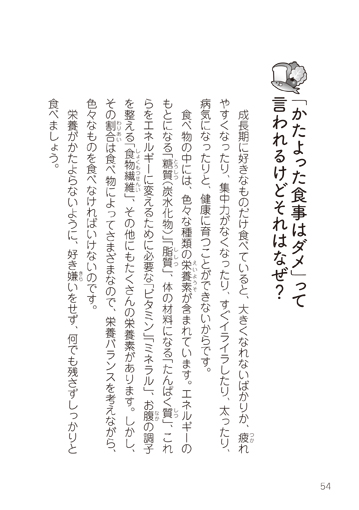 「かたよった食事はダメ」って
言われるけどそれはなぜ？
成長期に好きなものだけ食べていると、大きくなれないばかりか、疲れ
やすくなったり、集中力がなくなったり、すぐイライラしたり、太ったり、
病気になったりと、健康に育つことができないからです。
食べ物の中には、色々な種類の栄養素が含まれています。エネルギーの
もとになる「糖質（炭水化物）」「脂質」、体の材料になる「たんぱく質」、これ
らをエネルギーに変えるために必要な「ビタミン」「ミネラル」、お腹の調子
を整える「食物繊維」、その他にもたくさんの栄養素があります。しかし、
その割合は食べ物によってさまざまなので、栄養バランスを考えながら、
色々なものを食べなければいけないのです。
栄養がかたよらないように、好き嫌いをせず、何でも残さずしっかりと
食べましょう。
54